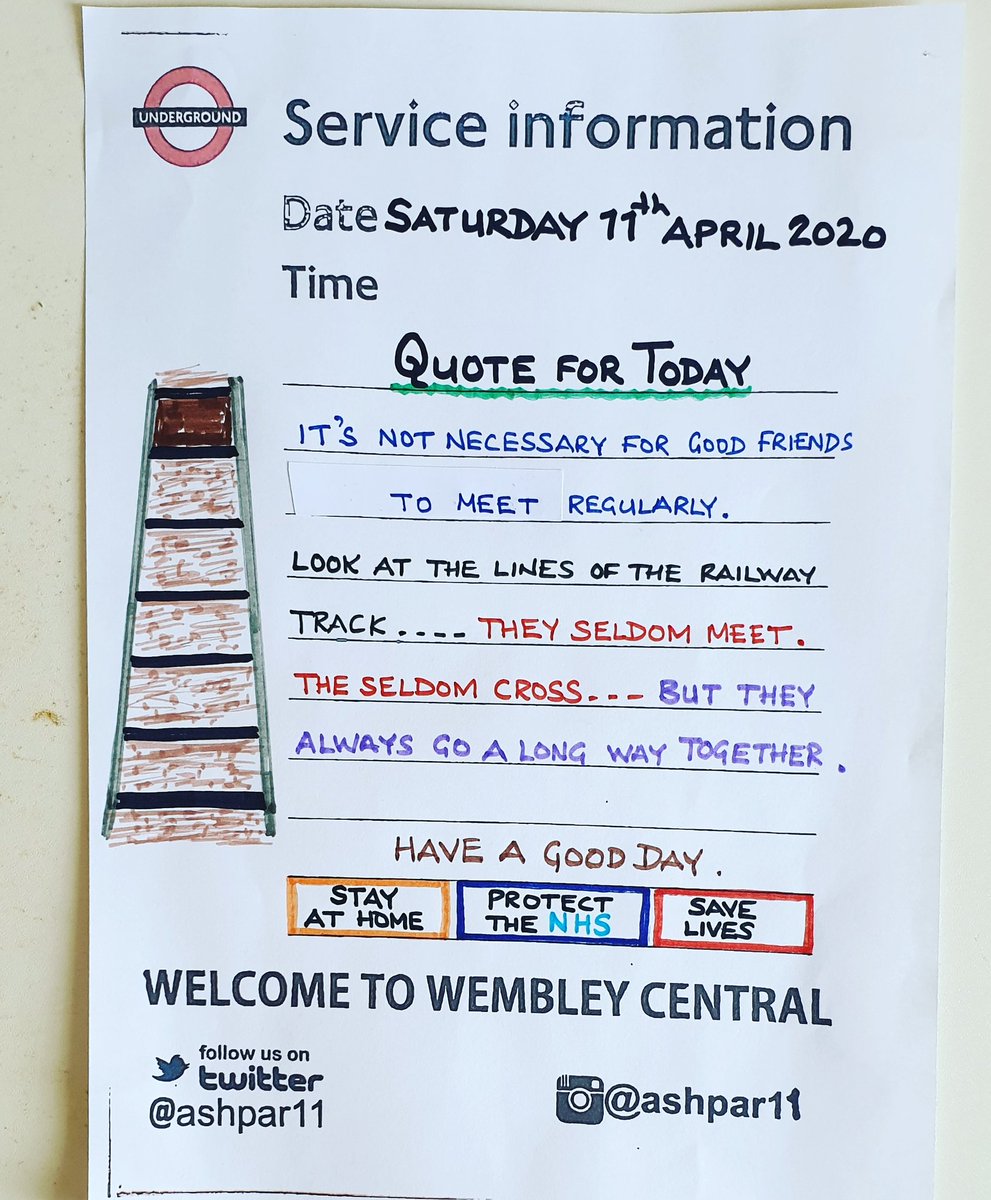 UNDERGROUND
Service information
Date SATURDAY 11th APRIL 2020
Time
QUOTE FOR TODAY
IT'S NOT NECESSARY FOR GOOD FRIENDS
TO MEET REGULARLY.
LOOK AT THE LINES OF THE RAILWAY
TRACK.---- THEY SELDOM MEET.
THE SELDOM CROSS.--- BUT THEY
ALWAYS GO A LONG WAY TOGETHER.
HAVE A GOOD DAY.
STAY
AT HOME
PROTECT
THE NHS
SAVE
LIVES
WELCOME TO WEMBLEY CENTRAL
follow us on
twitter
@ashpar11
@ashpar11